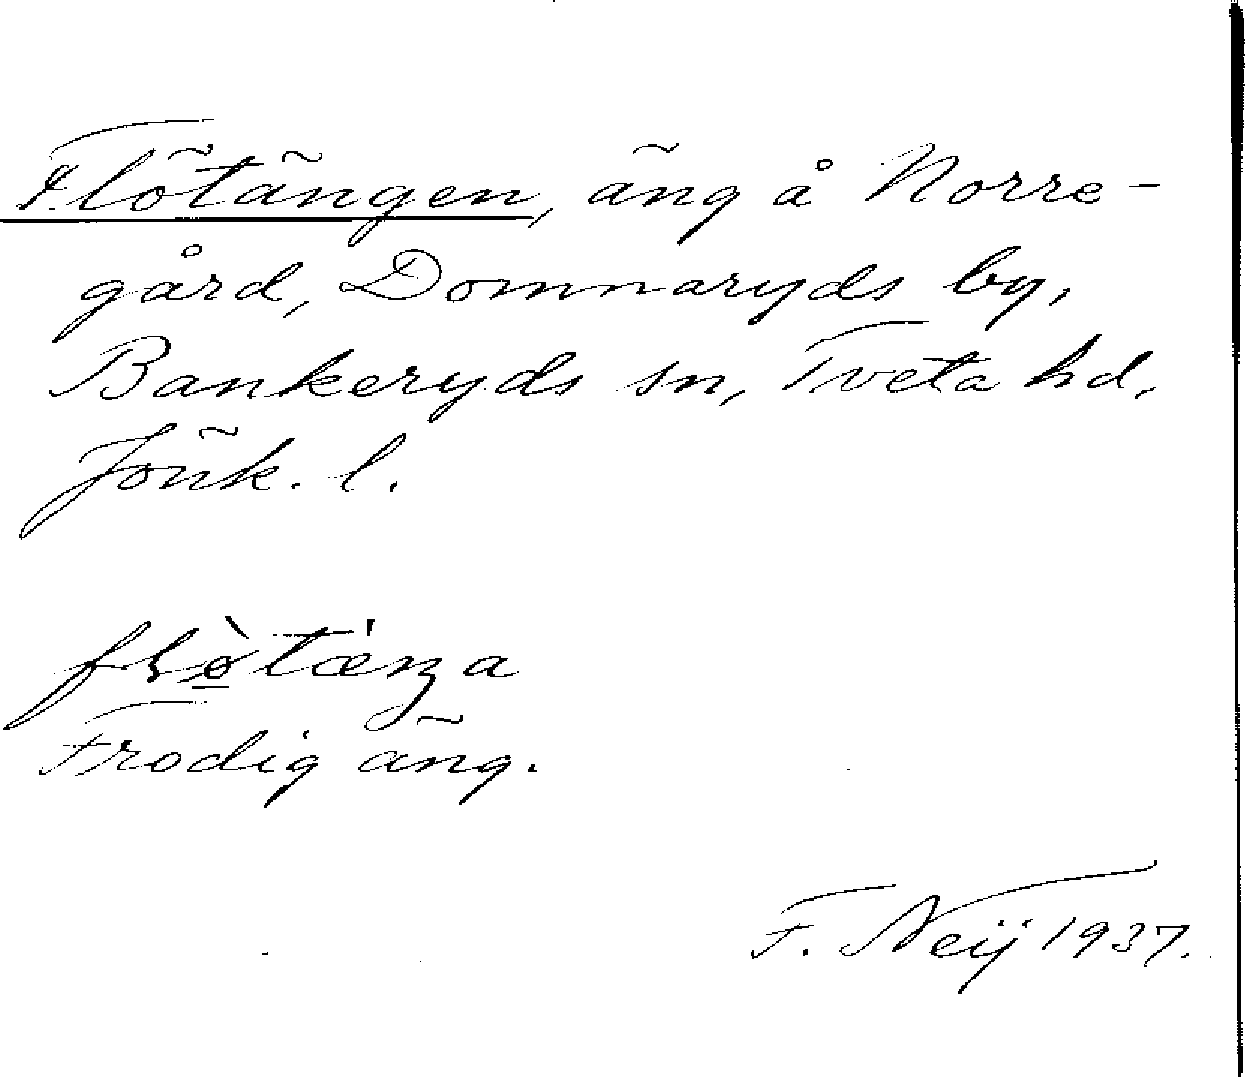 Flötängen, äng å Norre-
gård, Domnaryds by,
Bankeryds sn, Tveta hd,
Jönk. l.
flø̀tæŋa
Frodig äng.
F. Neij 1937.